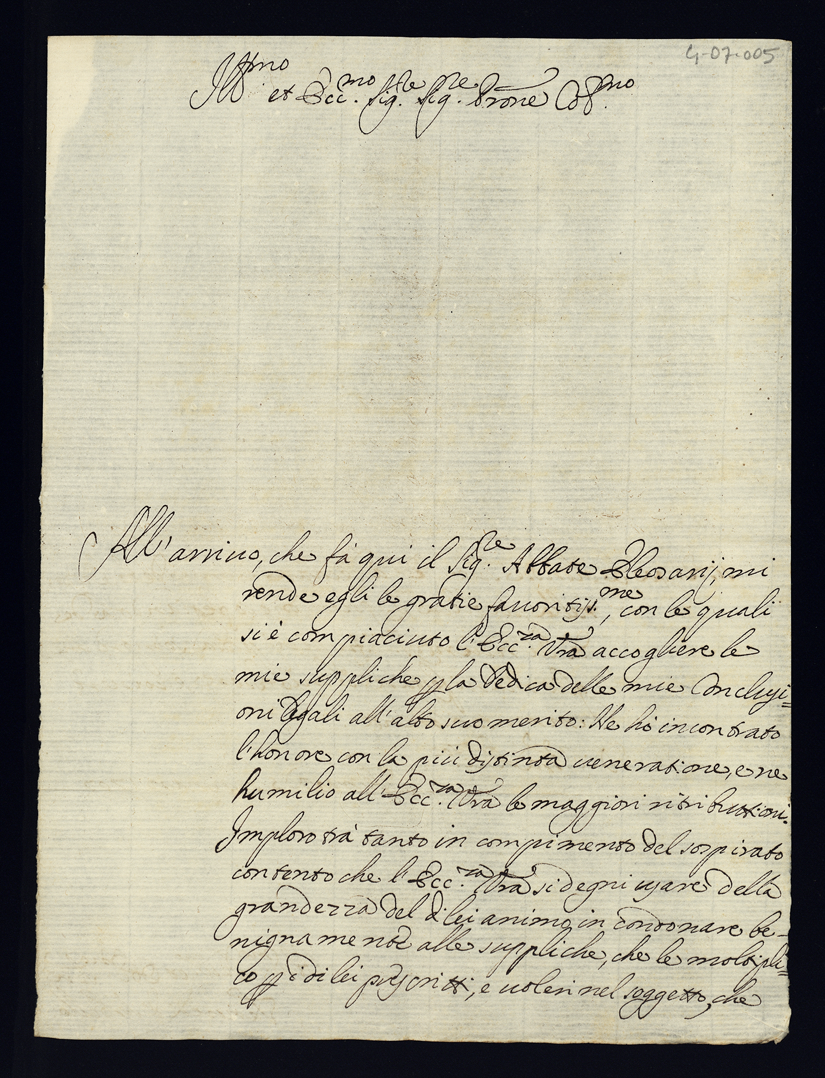 4-07-005
Ill.mo et Ecc.mo Sig.re Sig.re Prone Col.mo
All'arriuo, che fà qui il Sig.re Abbate, mi
rende egli le gratie fauoritiss.me, con le quali
si è compiaciuto l'Ecc.za Vra accogliere le
mie suppliche p la Dedica delle mie Conclusi=
oni legali all'alto suo merito: Ne hò incontrato
l'honore con la più distinta ueneratione, e ne
humilio all'Ecc.za Vra le maggiori ritributtioni.
Imploro trà tanto in compimento del sospirato
contento che l'Ecc.za Vra si degni usare della
grandezza del di lei animo, in condonare be-
nignamente alle suppliche, che le moltipli=
co p i di lei pscritti, e uoleri nel soggetto, che